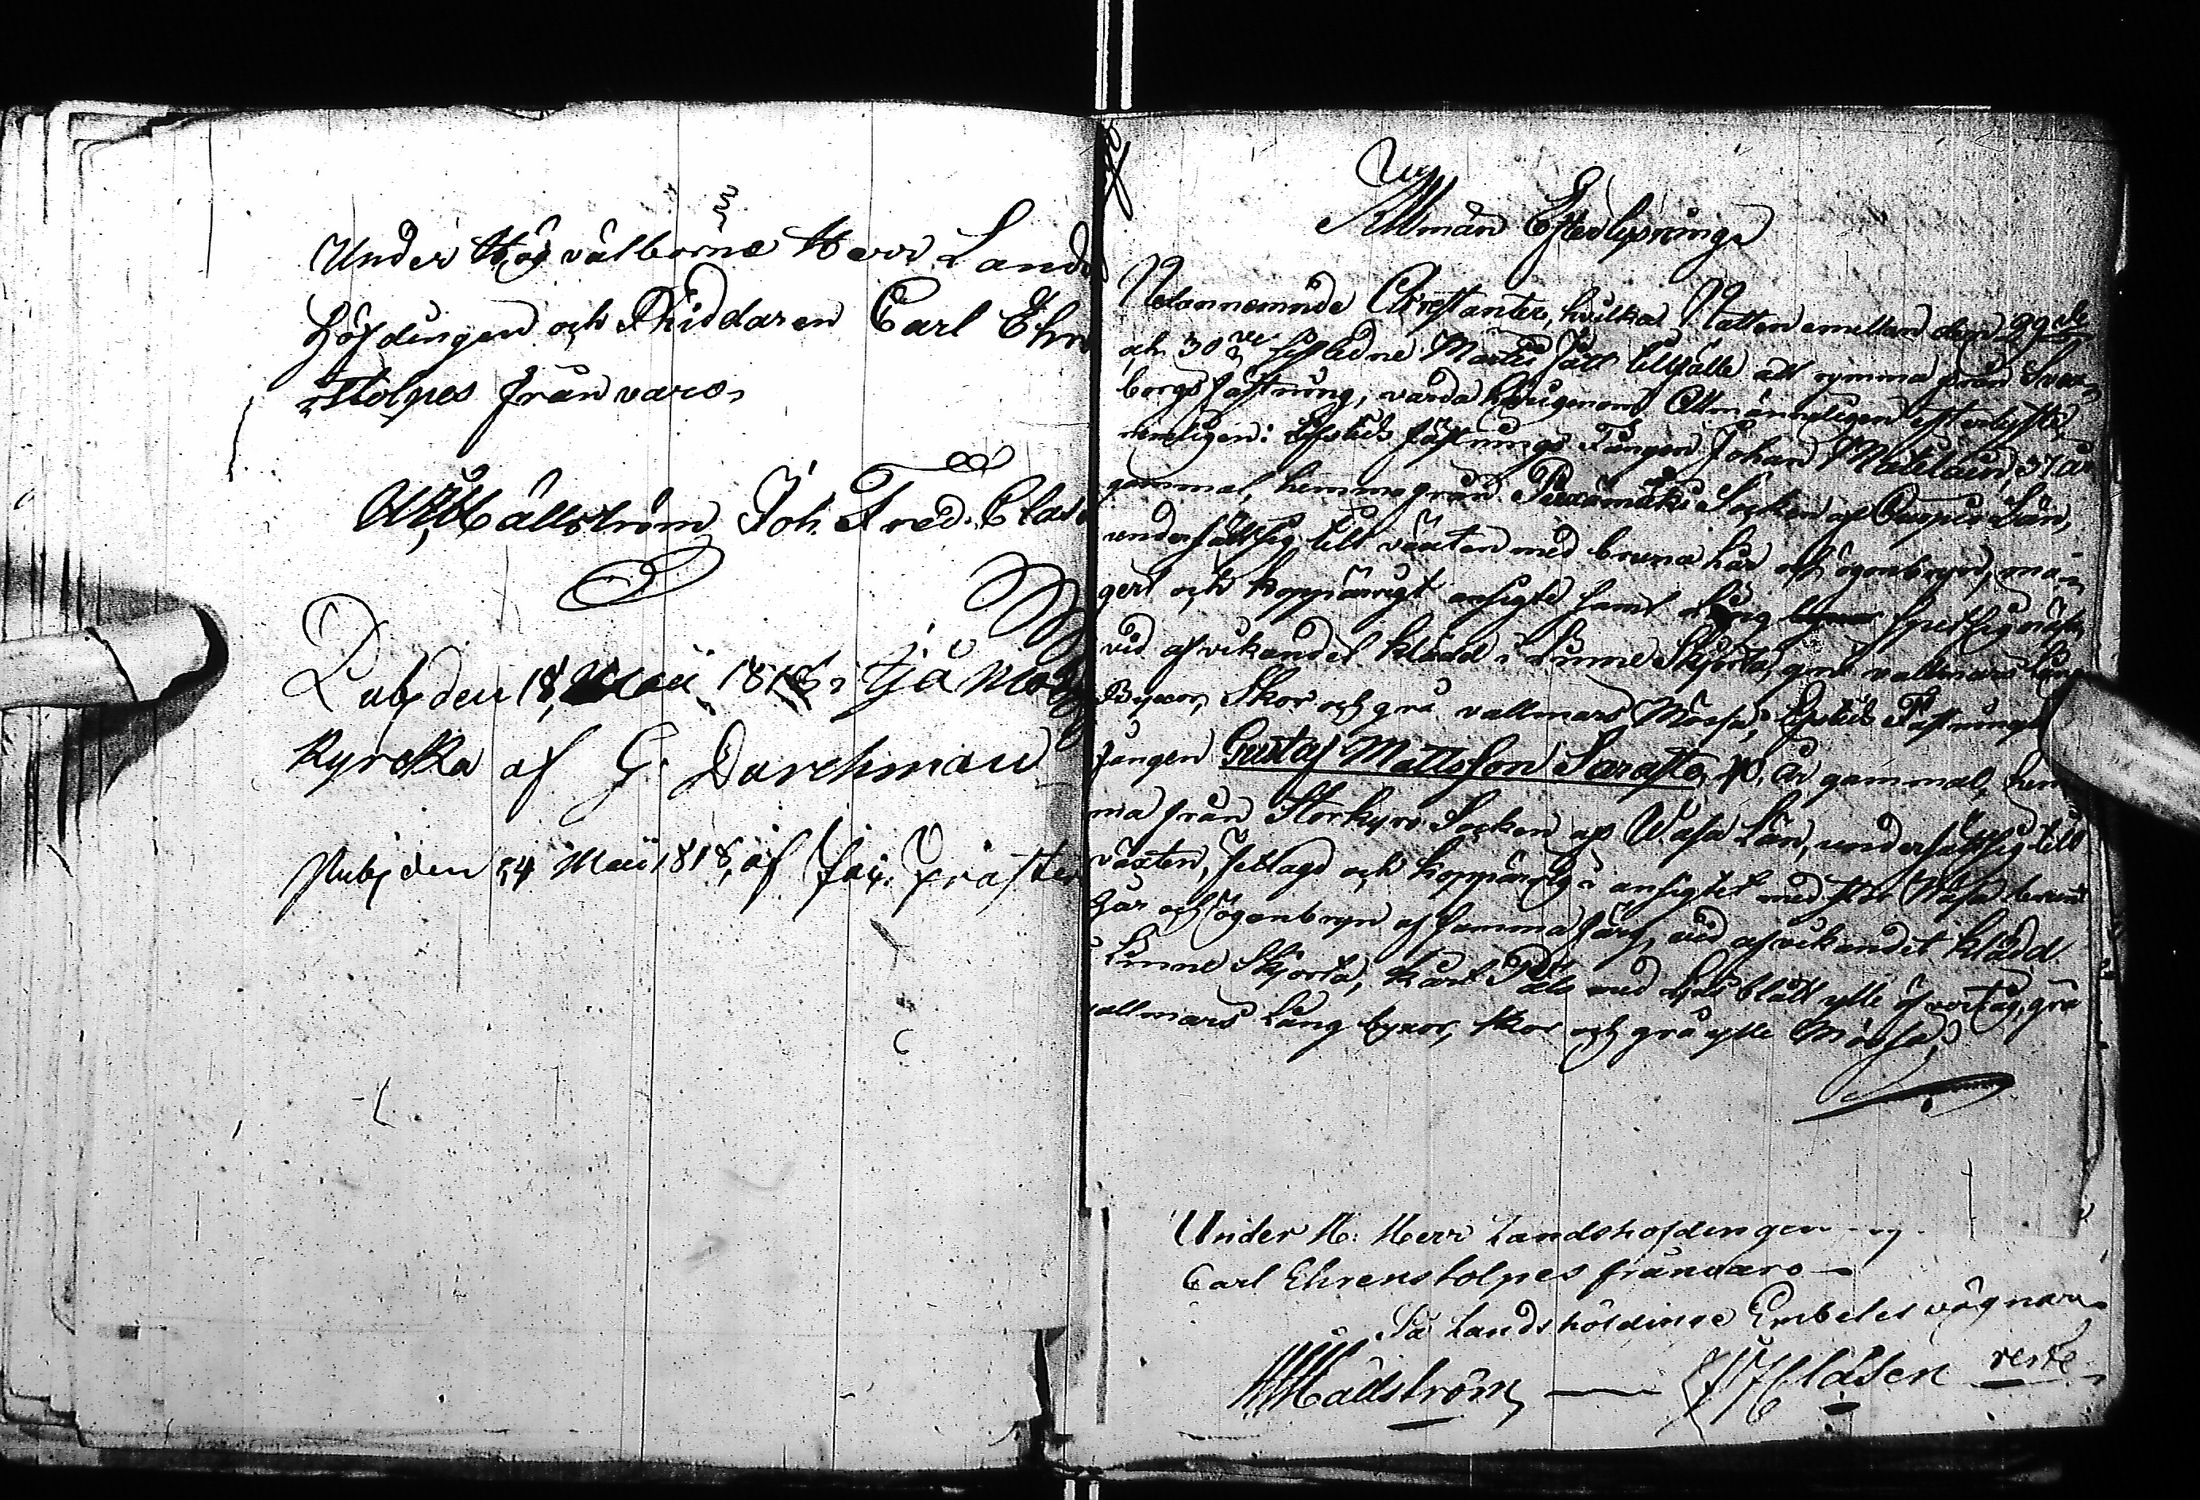 Under Högvälborne Herr Lands
höfdingen och Riddaren Carl Ehren
Stolpes frånvaro
Hällström Joh. Fred. Clas
Pub: den 18 Maii 1818, i
Kyrcka af G. Dorchman
Pub: den 24 Maii 1818, af
Allmän Efterlysning
Nedannemnde Arrestanter, hvilka Natten emellan den 29de
och 30de sistledne Martii fått tillfälle att rymma från Svea-
borgs fästning, varda härigenom Allmänneligen efterlyste,
nemligen: Lifstids fästnings Fången Johan Matilain, 37 år
gammal, hemma från Piexämäki Socken af Cuopio Län,
undersättsig till växten med bruna hår och ögonbryn, ma-
gert och koppärrigt ansigte samt spetsig näsa,
vid afvikandet klädd i Linne Skjorta, grå vallmars Lång
Byxor, Skor och grå vallmars Mössa; Lifstids Fästnings
fången Gustaf Mattsson Sarasto, 40 år gammal, hem
ma från Storkyro Socken af Wasa Län, undersättsig till
växten, fetlagd och koppärrig i ansigtet med stor Näsa brunt
hår och ögonbryn af samma färg, vid afvikandet klädd
i Linne Skjorta, kort Päls med blått ylle öfvertåg, grå
vallmars Lång byxor, skor och grå ylle Mössa;
Under H: Herr Landshöfdingen
Carl Ehrenstolpes frånvaro
På Landshöfdinge Embetes vägnar
Hällström Clasen